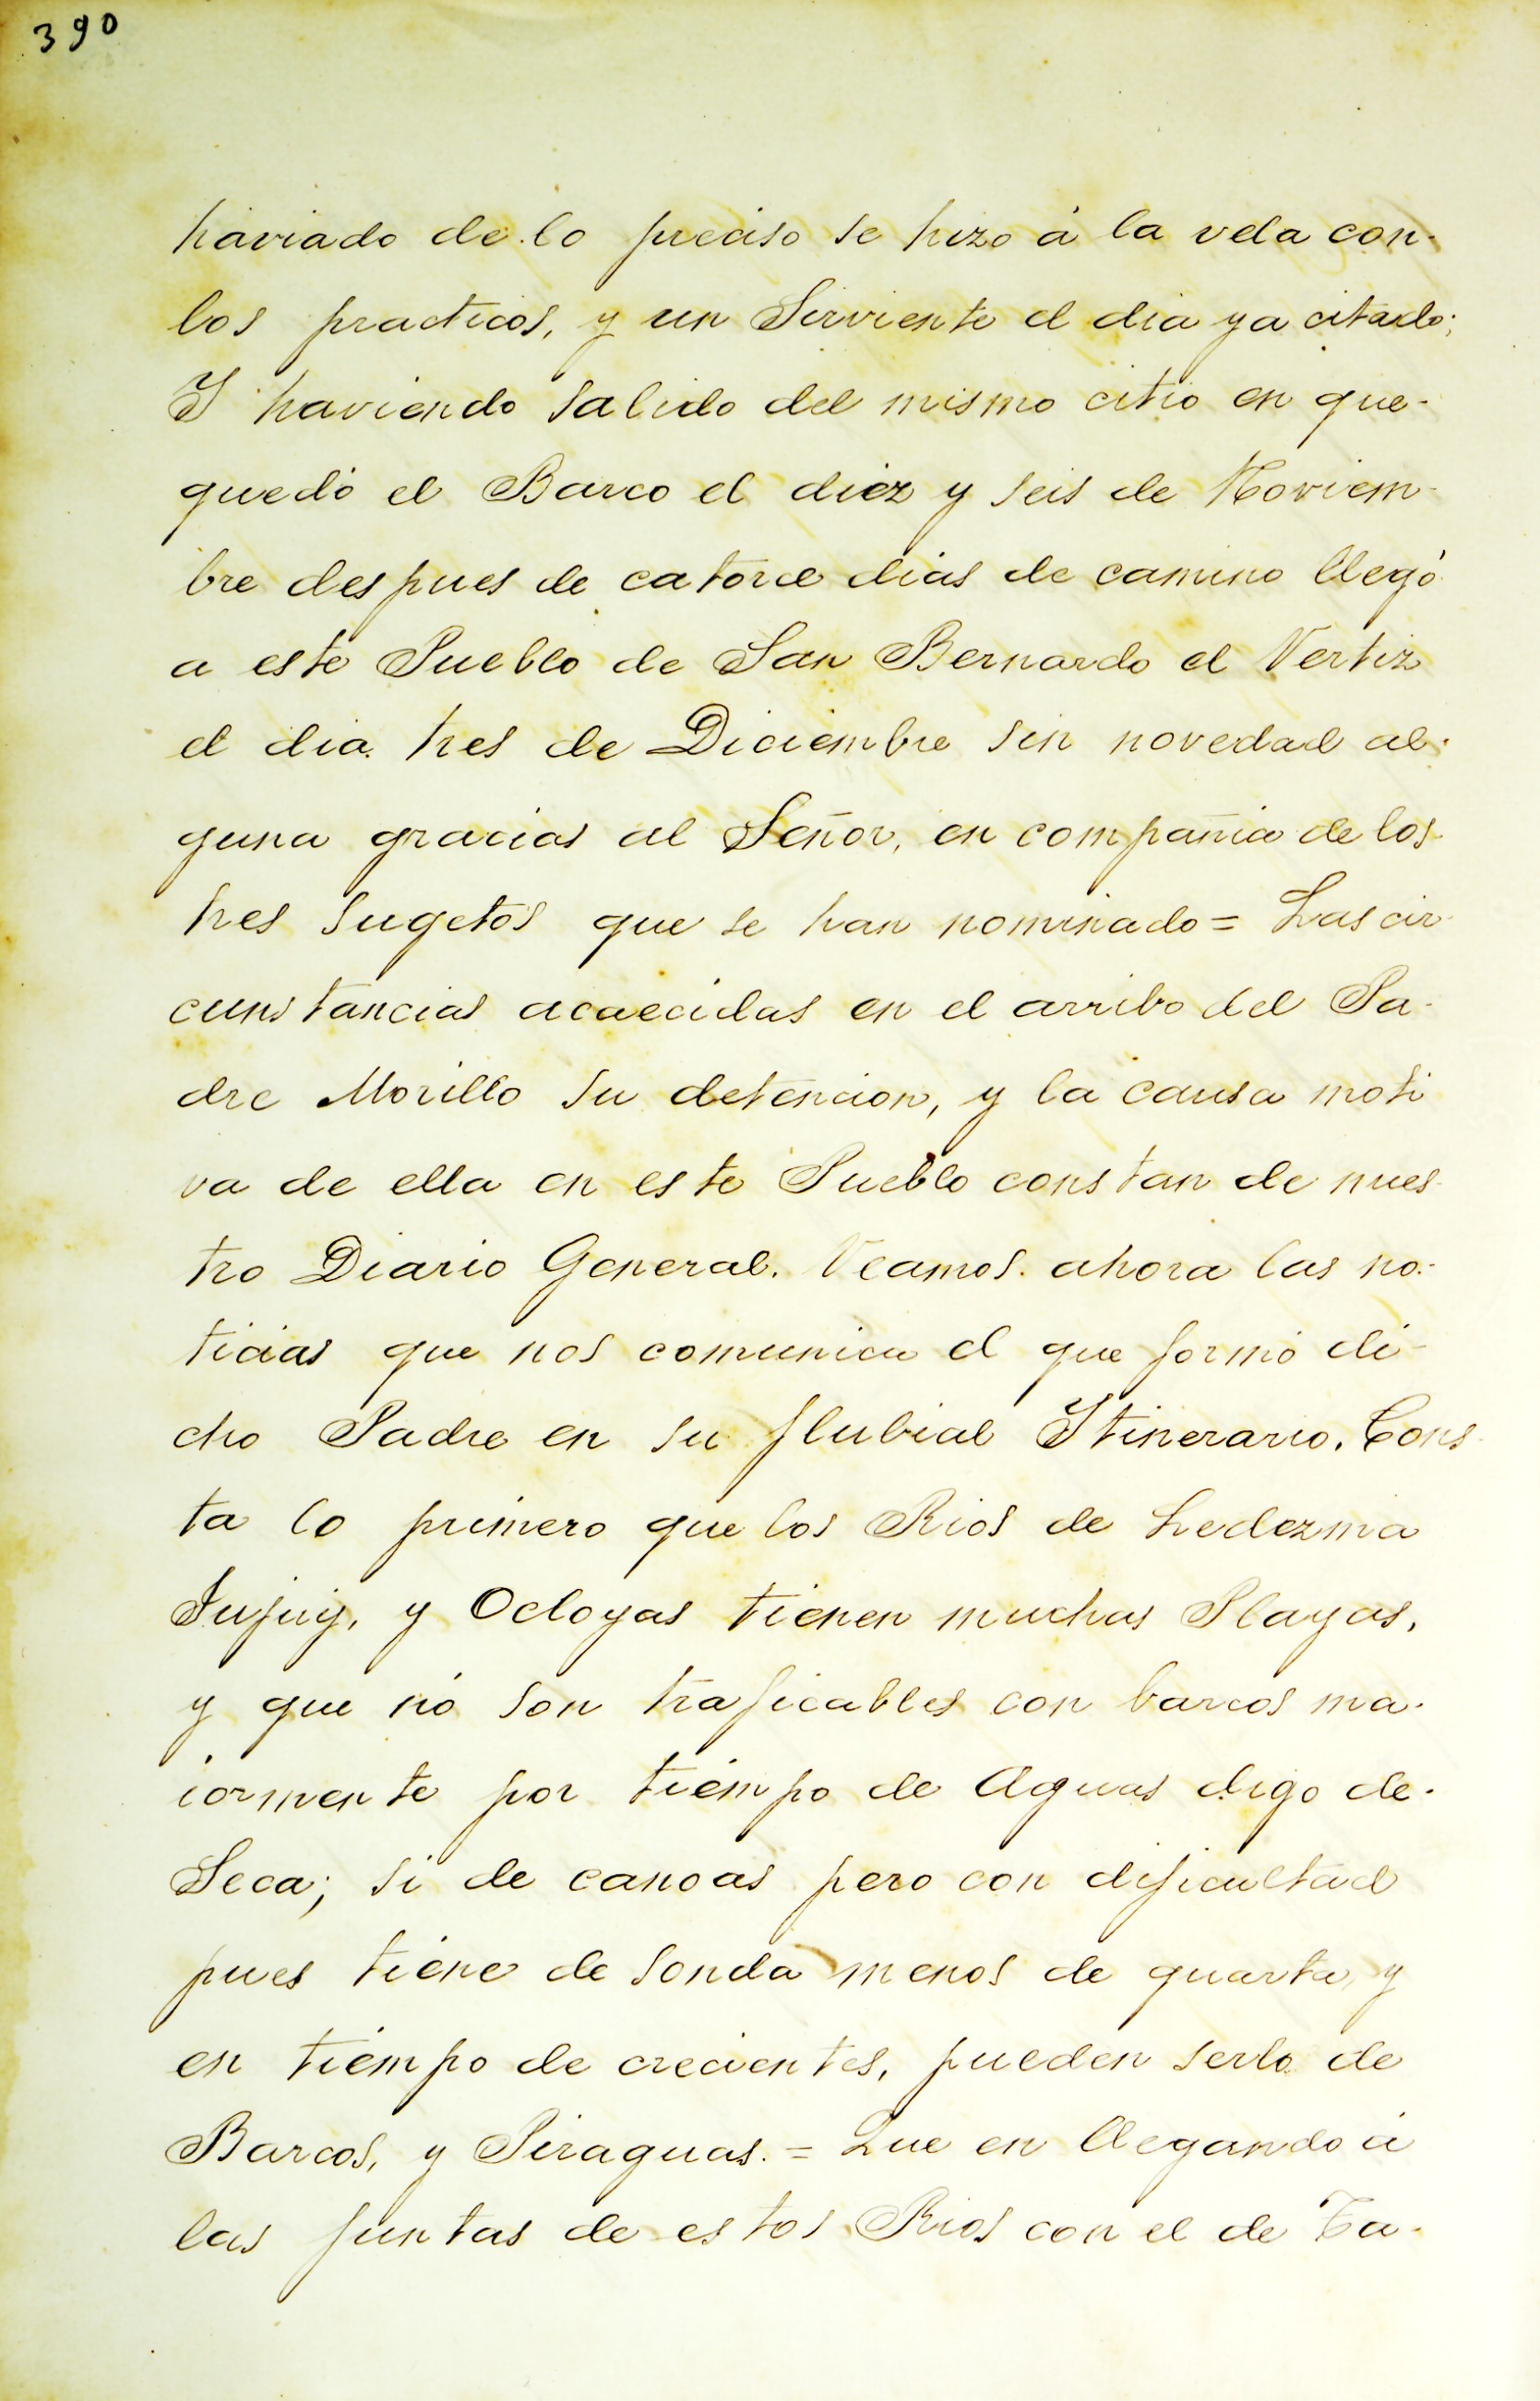 390
haviado de lo preciso se hizo á la vela con-
los practicos, y un Sirviente el dia ya citado;
Y haviendo salido del mismo citio en que-
quedó el Barco el diez y seis de Noviem-
bre despues de catorce dias de camino llegó
a este Pueblo de San Bernardo el Vertiz
el dia tres de Diciembre sin novedad al-
guna gracias al Señor, en compañia de los
tres sugetos que se han nominado = Las cir-
cunstancias acaecidas en el arribo del Pa-
dre Morillo su detencion, y la causa moti
va de ella en este Pueblo constan de nues-
tro Diario General. Veamos ahora las no-
ticias que nos comunica el que formó di-
cho Padre en su flubial Itinerario. Cons-
ta lo primero que los Rios de Ledezma
Jujuy, y Ocloyas tienen muchas Playas,
y que nó son traficables con barcos ma-
iormente por tiempo de Aguas digo de-
Seca; si de canoas pero con dificultad
pues tiene de sonda menos de quarta, y
en tiempo de crecientes, pueden serlo de
Barcos, y Piraguas. = Que en llegando á
las juntas de estos Rios con el de Ta-